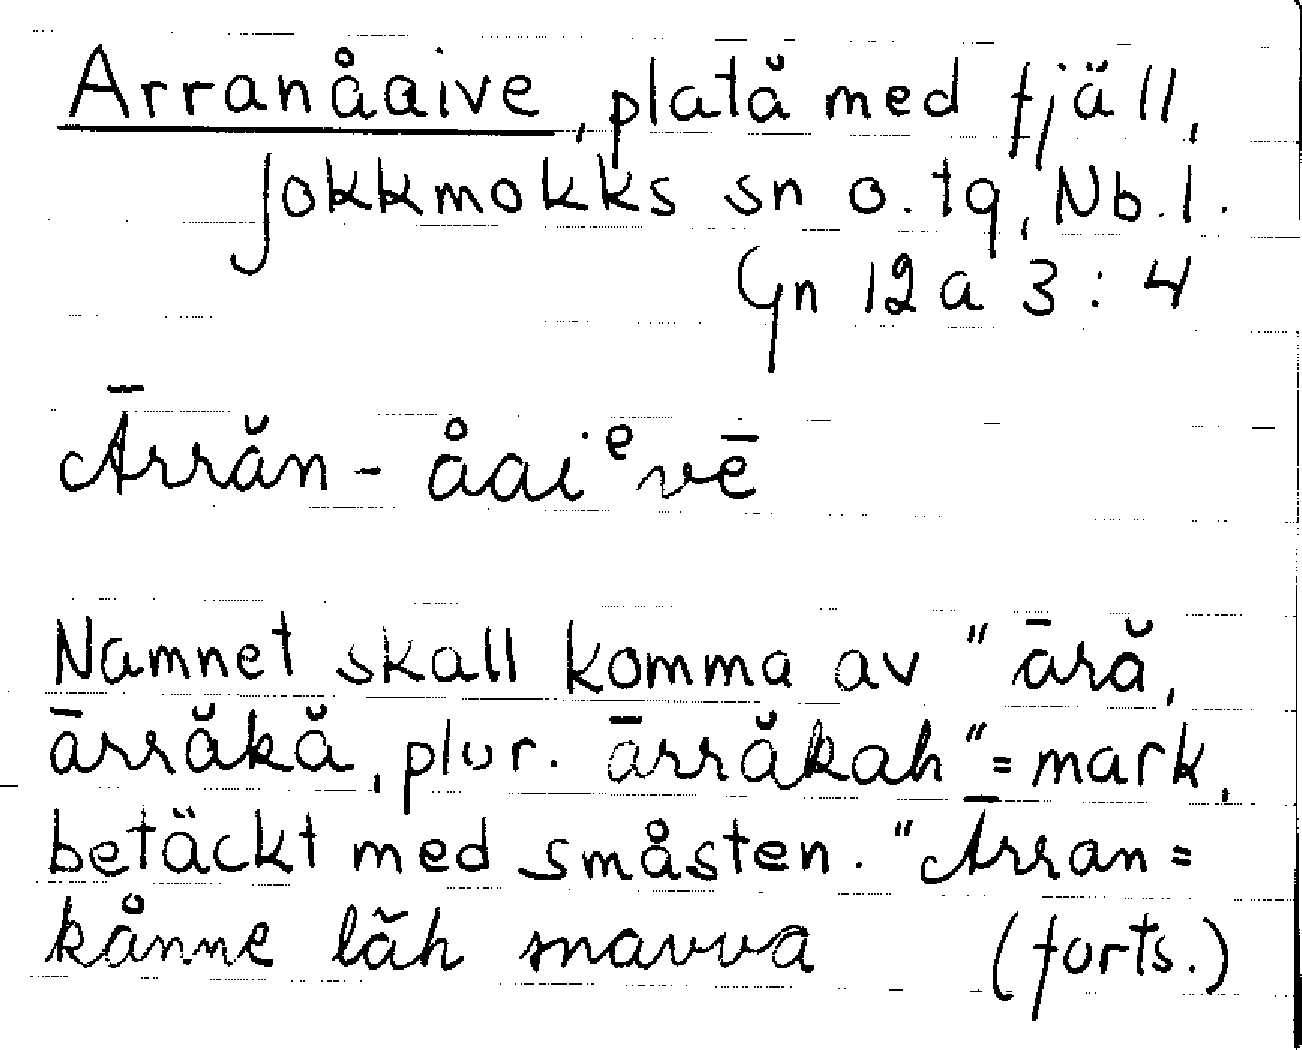 Arranåaive, platå med fjäll,
Jokkmokks sn o. tg, Nb. l.
Gn 12 a 3 : 4
Ārrăn - åaiᵉvē
Namnet skall komma av "āră,
ārrăkă, plur. ārrăkah" = mark,
betäckt med småsten. "Ārran=
kånne lăh snavva (forts.)